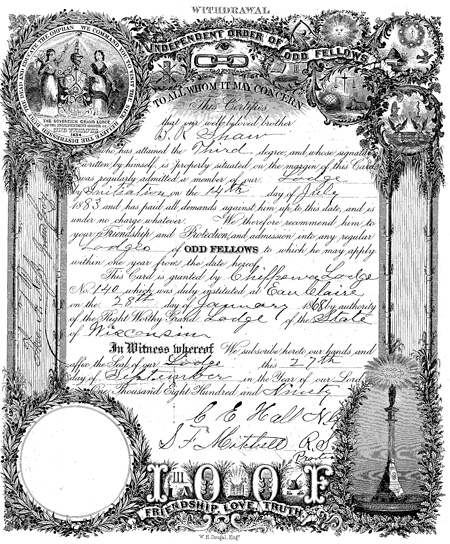 WITHDRAWAL
WE COMMAND YOU TO VISIT THE SICK
RELIEVE THE DISTRESSED
THE SOVEREIGN GRAND LODGE
INDEPENDENT ORDER OF
ODD FELLOWS
TO ALL WHOM IT MAY CONCERN
This Certifies
that our well-beloved brother
W. R. Shaw
who has attained the Third degree, and whose signature
written by himself, is properly situated on the margin of this Card
was regularly admitted a member of our Lodge
by Initiation on the 14th day of July
1883 and has paid all demands against him up to this date, and is
under no charge whatever. We therefore recommend him to
your Friendship and Protection, and admission into any regular
Lodges of ODD FELLOWS to which he may apply
within one year from the date hereof.
This Card is granted by Chippewa Lodge
No. 140 which was duly instituted at Eau Claire
on the 28th day of January 1868 by authority
of the Right Worthy Grand Lodge of the State
of Wisconsin
In Witness whereof We subscribe hereto our hands, and
affix the Seal of our Lodge this 27th
day of September in the Year of our Lord
Thousand Eight Hundred and Ninety
C E Hall N.G
S. F. Mitchell R.S
I O O F
FRIENDSHIP, LOVE, TRUTH
W.H. Dougal, Engr.